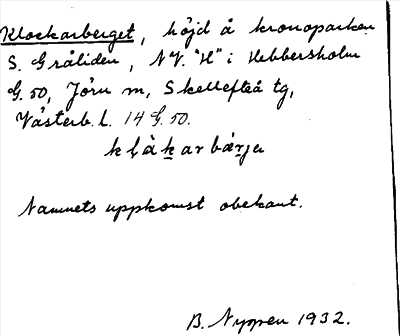 Klockarberget, höjd å kronoparken
S. Gråliden, NV. "H" i Hebbersholm
G. 50, Jörn m, Skellefteå tg,
Västerb. l. 14 G. 50.
Namnets uppkomst obekant.
B. Nyppen 1932.